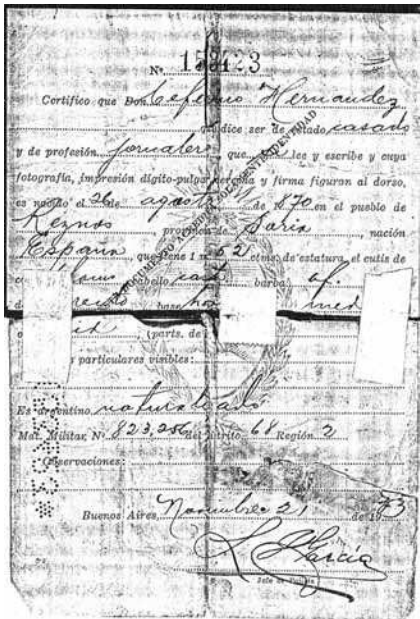 Nº 153423
Certifico que Don Ceferino Hernandez
que dice ser de estado casado
y de profesión jornalero que lee y escribe y cuya
fotografía, impresión dígito-pulgar derecha y firma figuran al dorso,
es nacido el 26 de agosto de 1870 en el pueblo de
Reznos, provincia de Soria, nación
España, que tiene 1 m 62 ctms. de estatura, el cutis de
cabello cast barba af.
base med
(parts. de
particulares visibles:
Es argentino naturalizado
Mat. Militar Nº 823,256 del distrito 68 Región 2
Observaciones:
Buenos Aires, Noviembre 21 de 19
García
Jefe de Policía